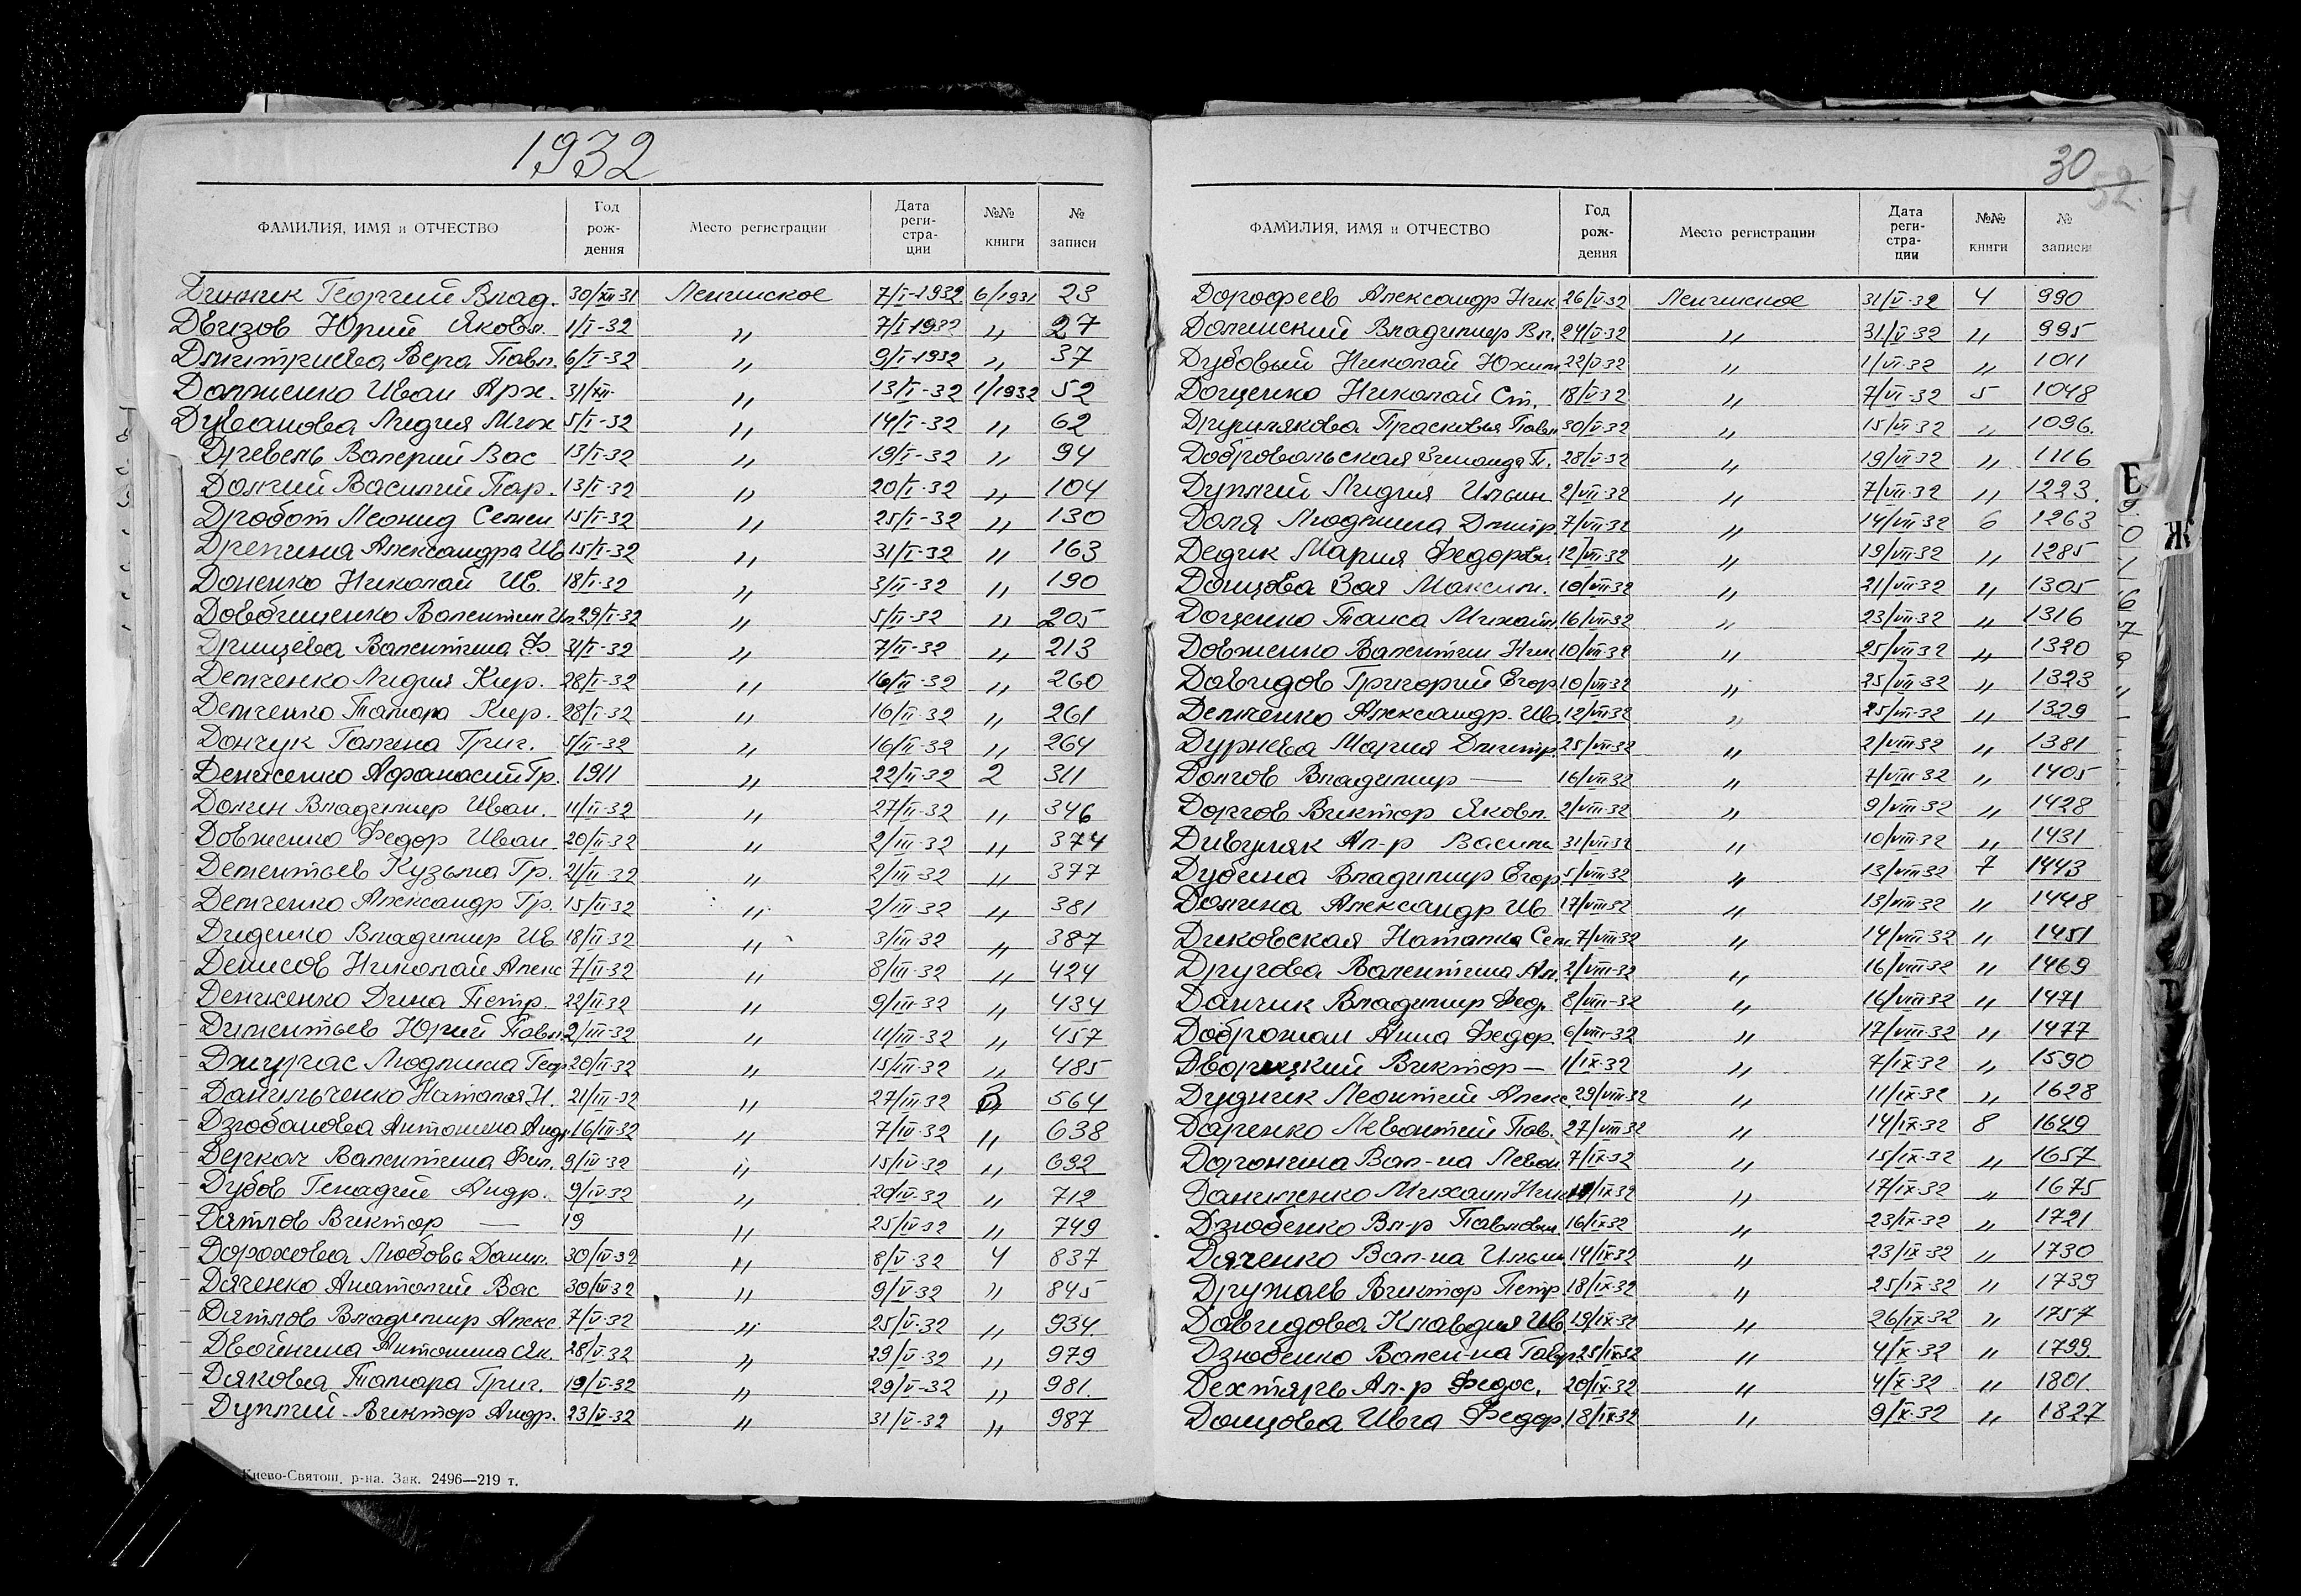 1932
ФАМИЛИЯ, ИМЯ и ОТЧЕСТВО Год рождения Место регистрации Дата регистрации №№ книги № записи
Динник Георгий Влад. 30/XII-31 Ленинское 7/I-1932 6/1931 23
Двизов Юрий Яковл. 1/I-32 〃 7/I-1932 〃 27
Дмитриева Вера Павл. 6/I-32 〃 9/I-1932 〃 37
Долженко Иван Арх. 31/XII- 〃 13/I-32 1/1932 52
Дуванова Лидия Мих 5/I-32 〃 14/I-32 〃 62
Древель Валерий Вас 13/I-32 〃 19/I-32 〃 94
Должий Василий Пар. 13/I-32 〃 20/I-32 〃 104
Дробот Леонид Семен 15/I-32 〃 25/I-32 〃 130
Дрепина Александра Ив 15/I-32 〃 31/I-32 〃 163
Доненко Николай Ив. 18/I-32 〃 3/II-32 〃 190
Довбищенко Валентин Ил 29/I-32 〃 5/II-32 〃 205
Дрищева Валентина Ф /I-32 〃 7/II-32 〃 213
Демченко Лидия Кир. 28/I-32 〃 16/II-32 〃 260
Демченко Тамара Кир. 28/I-32 〃 16/II-32 〃 261
Дончук Галина Григ. /II-32 〃 16/II-32 〃 264
Денисенко Афанасий Гр. 1911 〃 22/II-32 2 311
Долин Владимир Иван. 11/II-32 〃 27/II-32 〃 346
Довженко Федор Иван 20/II-32 〃 2/III-32 〃 374
Дементьев Кузьма Гр. 21/II-32 〃 2/III-32 〃 377
Демченко Александр Гр. 15/II-32 〃 2/III-32 〃 381
Диденко Владимир Ив 18/II-32 〃 3/III-32 〃 387
Денисов Николай Алекс 7/II-32 〃 8/III-32 〃 424
Денисенко Дина Петр. 22/II-32 〃 9/III-32 〃 434
Диментьев Юрий Павл 2/III-32 〃 11/III-32 〃 457
Джургас Людмила Геор 20/II-32 〃 15/III-32 〃 485
Данильченко Наталья Н. 21/III-32 〃 27/III-32 3 564
Дзюбанова Антонина Андр 16/III-32 〃 7/IV-32 〃 638
Деркач Валентина Фил. 9/IV-32 〃 15/IV-32 〃 692
Дубов Генадий Андр. 9/IV-32 〃 20/IV-32 〃 712
Дятлов Виктор — 19 〃 25/IV-32 〃 749
Дорохова Любовь Данил. 30/IV-32 〃 8/V-32 4 837
Дяченко Анатолий Вас 30/IV-32 〃 9/V-32 〃 845
Дятлов Владимир Алекс 7/V-32 〃 25/V-32 〃 934
Двойнина Антонина Як. 28/V-32 〃 29/V-32 〃 979
Дякова Тамара Григ. 19/V-32 〃 29/V-32 〃 981
Дуплий Виктор Андр. 23/V-32 〃 31/V-32 〃 987
Киево-Святош. р-на. Зак. 2496—219 т.
30
52
ФАМИЛИЯ, ИМЯ и ОТЧЕСТВО Год рождения Место регистрации Дата регистрации №№ книги № записи
Дорофеев Александр Ник 26/V-32 Ленинское 31/V-32 4 990
Долинский Владимир Вл. 24/V-32 〃 31/V-32 〃 995
Дубовый Николай Юхим 22/V-32 〃 1/VI-32 〃 1011
Доценко Николай Ст. 18/V-32 〃 7/VI-32 5 1048
Друшлякова Прасковья Павл 30/V-32 〃 15/VI-32 〃 1096
Добровольская Зинаида П. 28/V-32 〃 19/VI-32 〃 1116
Дуплий Лидия Ильин 2/VII-32 〃 7/VII-32 〃 1223
Доля Людмила Дмитр. 7/VII-32 〃 14/VII-32 6 1263
Дедик Мария Федоровн. 12/VII-32 〃 19/VII-32 〃 1285
Донцова Зоя Максим. 10/VII-32 〃 21/VII-32 〃 1305
Доценко Таиса Михайл. 16/VII-32 〃 23/VII-32 〃 1316
Довженко Валентин Ник 10/VII-32 〃 25/VII-32 〃 1320
Давидов Григорий Егор 10/VII-32 〃 25/VII-32 〃 1323
Демченко Александр. Ив. 12/VII-32 〃 25/VII-32 〃 1329
Дурнева Мария Дмитр. 25/VII-32 〃 2/VIII-32 〃 1381
Долгов Владимир — 16/VII-32 〃 7/VIII-32 〃 1405
Доргов Виктор Яковл. 2/VIII-32 〃 9/VIII-32 〃 1428
Дивуляк Ал-р Василь 31/VII-32 〃 10/VIII-32 〃 1431
Дубина Владимир Егор 5/VIII-32 〃 13/VIII-32 7 1443
Долина Александр Ив 17/VIII-32 〃 13/VIII-32 〃 1448
Диковская Наталка Сем 7/VIII-32 〃 14/VIII-32 〃 1451
Другова Валентина Ал. 2/VIII-32 〃 16/VIII-32 〃 1469
Данчик Владимир Фед. 8/VIII-32 〃 16/VIII-32 〃 1471
Доброжан Анна Федор. 6/VIII-32 〃 17/VIII-32 〃 1477
Дворицкий Виктор — 1/IX-32 〃 7/IX-32 〃 1590
Дудник Леонтий Алекс. 29/VIII-32 〃 11/IX-32 〃 1628
Даренко Левонтий Пав. 27/VIII-32 〃 14/IX-32 8 1649
Доронина Вал-на Леван 7/IX-32 〃 15/IX-32 〃 1657
Даниленко Михаил Ник /IX-32 〃 17/IX-32 〃 1675
Дзюбенко Вл-р Павлович 16/IX-32 〃 23/IX-32 〃 1721
Дяченко Вал-на Ильин 14/IX-32 〃 23/IX-32 〃 1730
Дружаев Виктор Петр. 18/IX-32 〃 25/IX-32 〃 1739
Давидова Клавдия Ив. 19/IX-32 〃 26/IX-32 〃 1757
Дзюбенко Вален-на Гавр. 25/IX-32 〃 4/X-32 〃 1799
Дехтярь Ал-р Федос. 20/IX-32 〃 4/X-32 〃 1801
Донцова Ивга Федор. 18/IX-32 〃 9/X-32 〃 1827
Е
Ж